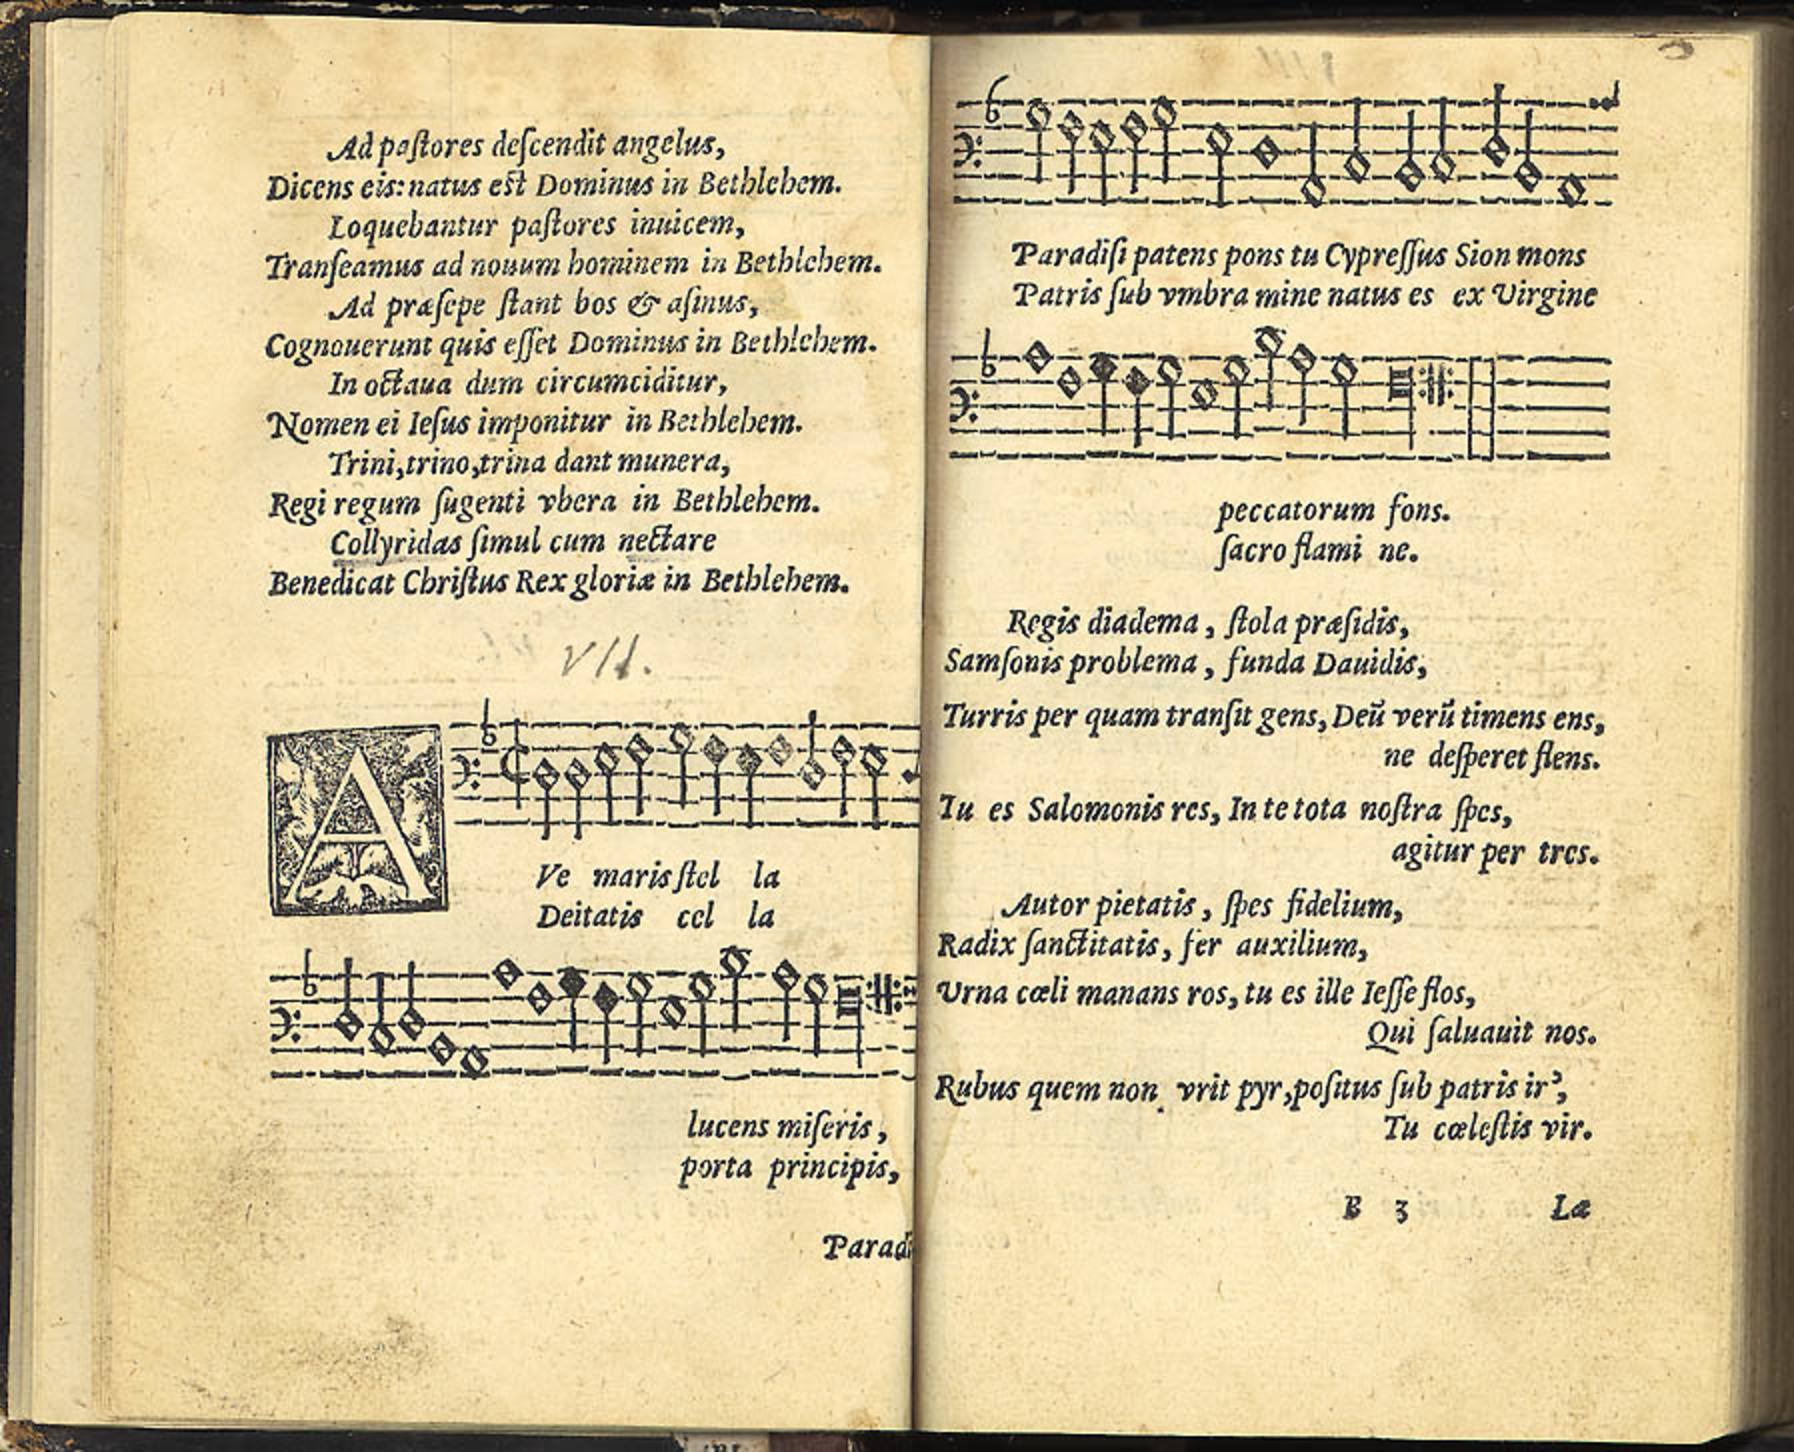 Ad paſtores deſcendit angelus,
Dicens eis: natus eſt Dominus in Bethlehem.
Loquebantur paſtores inuicem,
Tranſeamus ad nouum hominem in Bethlehem.
Ad præſepe ſtant bos & aſinus,
Cognouerunt quis eſſet Dominus in Bethlehem.
In octaua dum circumciditur,
Nomen ei Ieſus imponitur in Bethlehem.
Trini, trino, trina dant munera,
Regi regum ſugenti vbera in Bethlehem.
Collyridas ſimul cum nectare
Benedicat Chriſtus Rex gloriæ in Bethlehem.
VII.
A
Ve maris ſtel la
Deitatis cel la
lucens miſeris,
porta principis,
Paradi
Paradiſi patens pons tu Cypreſſus Sion mons
Patris ſub vmbra mine natus es ex Virgine
peccatorum fons.
ſacro flami ne.
Regis diadema, ſtola præſidis,
Samſonis problema, funda Dauidis,
Turris per quam tranſit gens, Deū verū timens ens,
ne deſperet flens.
Tu es Salomonis res, In te tota noſtra ſpes,
agitur per tres.
Autor pietatis, ſpes fidelium,
Radix ſanctitatis, fer auxilium,
Vrna cœli manans ros, tu es ille Ieſſe flos,
Qui ſaluauit nos.
Rubus quem non vrit pyr, poſitus ſub patris irꝰ,
Tu cœleſtis vir.
B 3 Læ